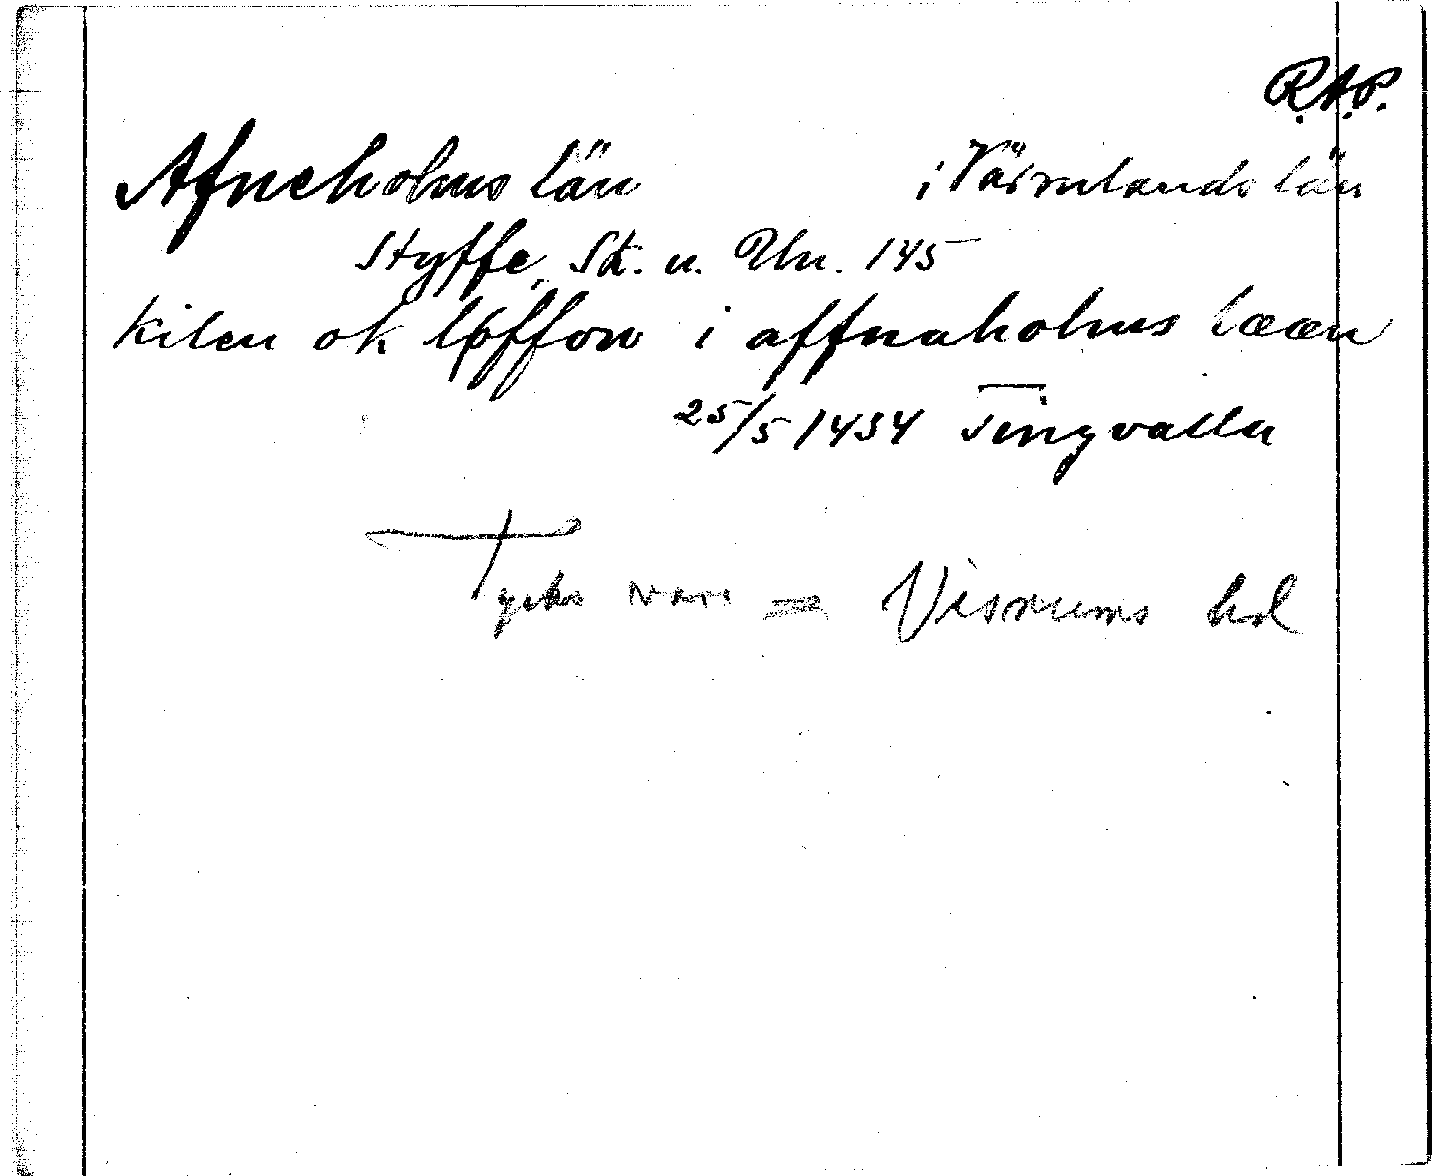 R.A.P.
Afneholms län i Värmlands län
Styffe, Sk. u. Un. 145
Kilen ok löffow i affnaholms lææn
25/5 1434 Tingvalla
Tycks vara = Visnums hd